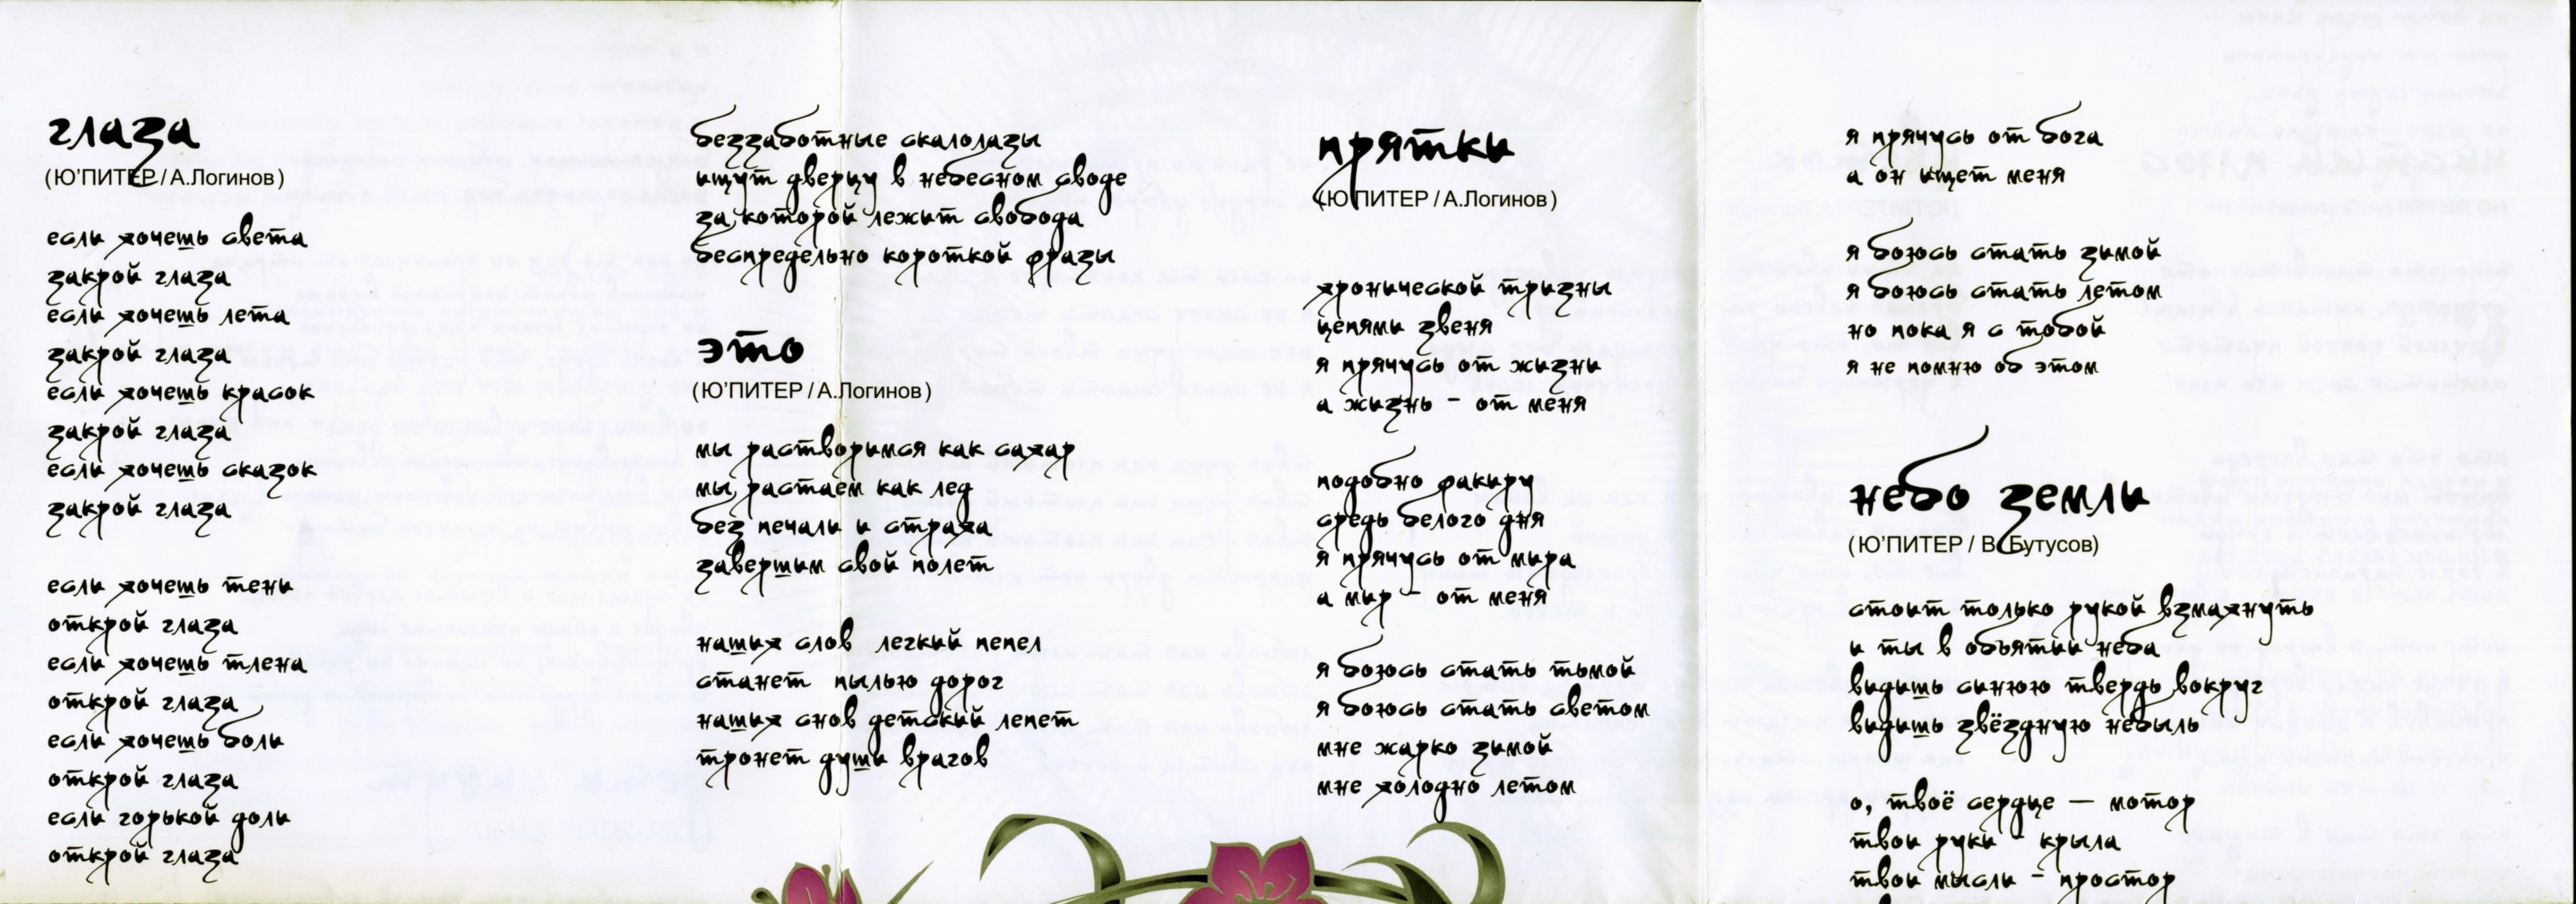 глаза
(Ю'ПИТЕР / А.Логинов)
если хочешь света
закрой глаза
если хочешь лета
закрой глаза
если хочешь красок
закрой глаза
если хочешь сказок
закрой глаза
если хочешь тени
открой глаза
если хочешь тлена
открой глаза
если хочешь боли
открой глаза
если горькой доли
открой глаза
беззаботные скалолазы
ищут дверцу в небесном своде
за которой лежит свобода
беспредельно короткой фразы
это
(Ю'ПИТЕР / А.Логинов)
мы растворимся как сахар
мы растаем как лед
без печали и страха
завершим свой полет
наших слов легкий пепел
станет пылью дорог
наших снов детский лепет
тронет души врагов
прятки
(Ю'ПИТЕР / А.Логинов)
хронической тризны
цепями звеня
я прячусь от жизни
а жизнь - от меня
подобно факиру
средь белого дня
я прячусь от мира
а мир - от меня
я боюсь стать тьмой
я боюсь стать светом
мне жарко зимой
мне холодно летом
я прячусь от бога
а он ищет меня
я боюсь стать зимой
я боюсь стать летом
но пока я с тобой
я не помню об этом
небо земли
(Ю'ПИТЕР / В. Бутусов)
стоит только рукой взмахнуть
и ты в объятии неба
видишь синюю твердь вокруг
видишь звёздную небыль
о, твоё сердце — мотор
твои руки - крыла
твои мысли - простор